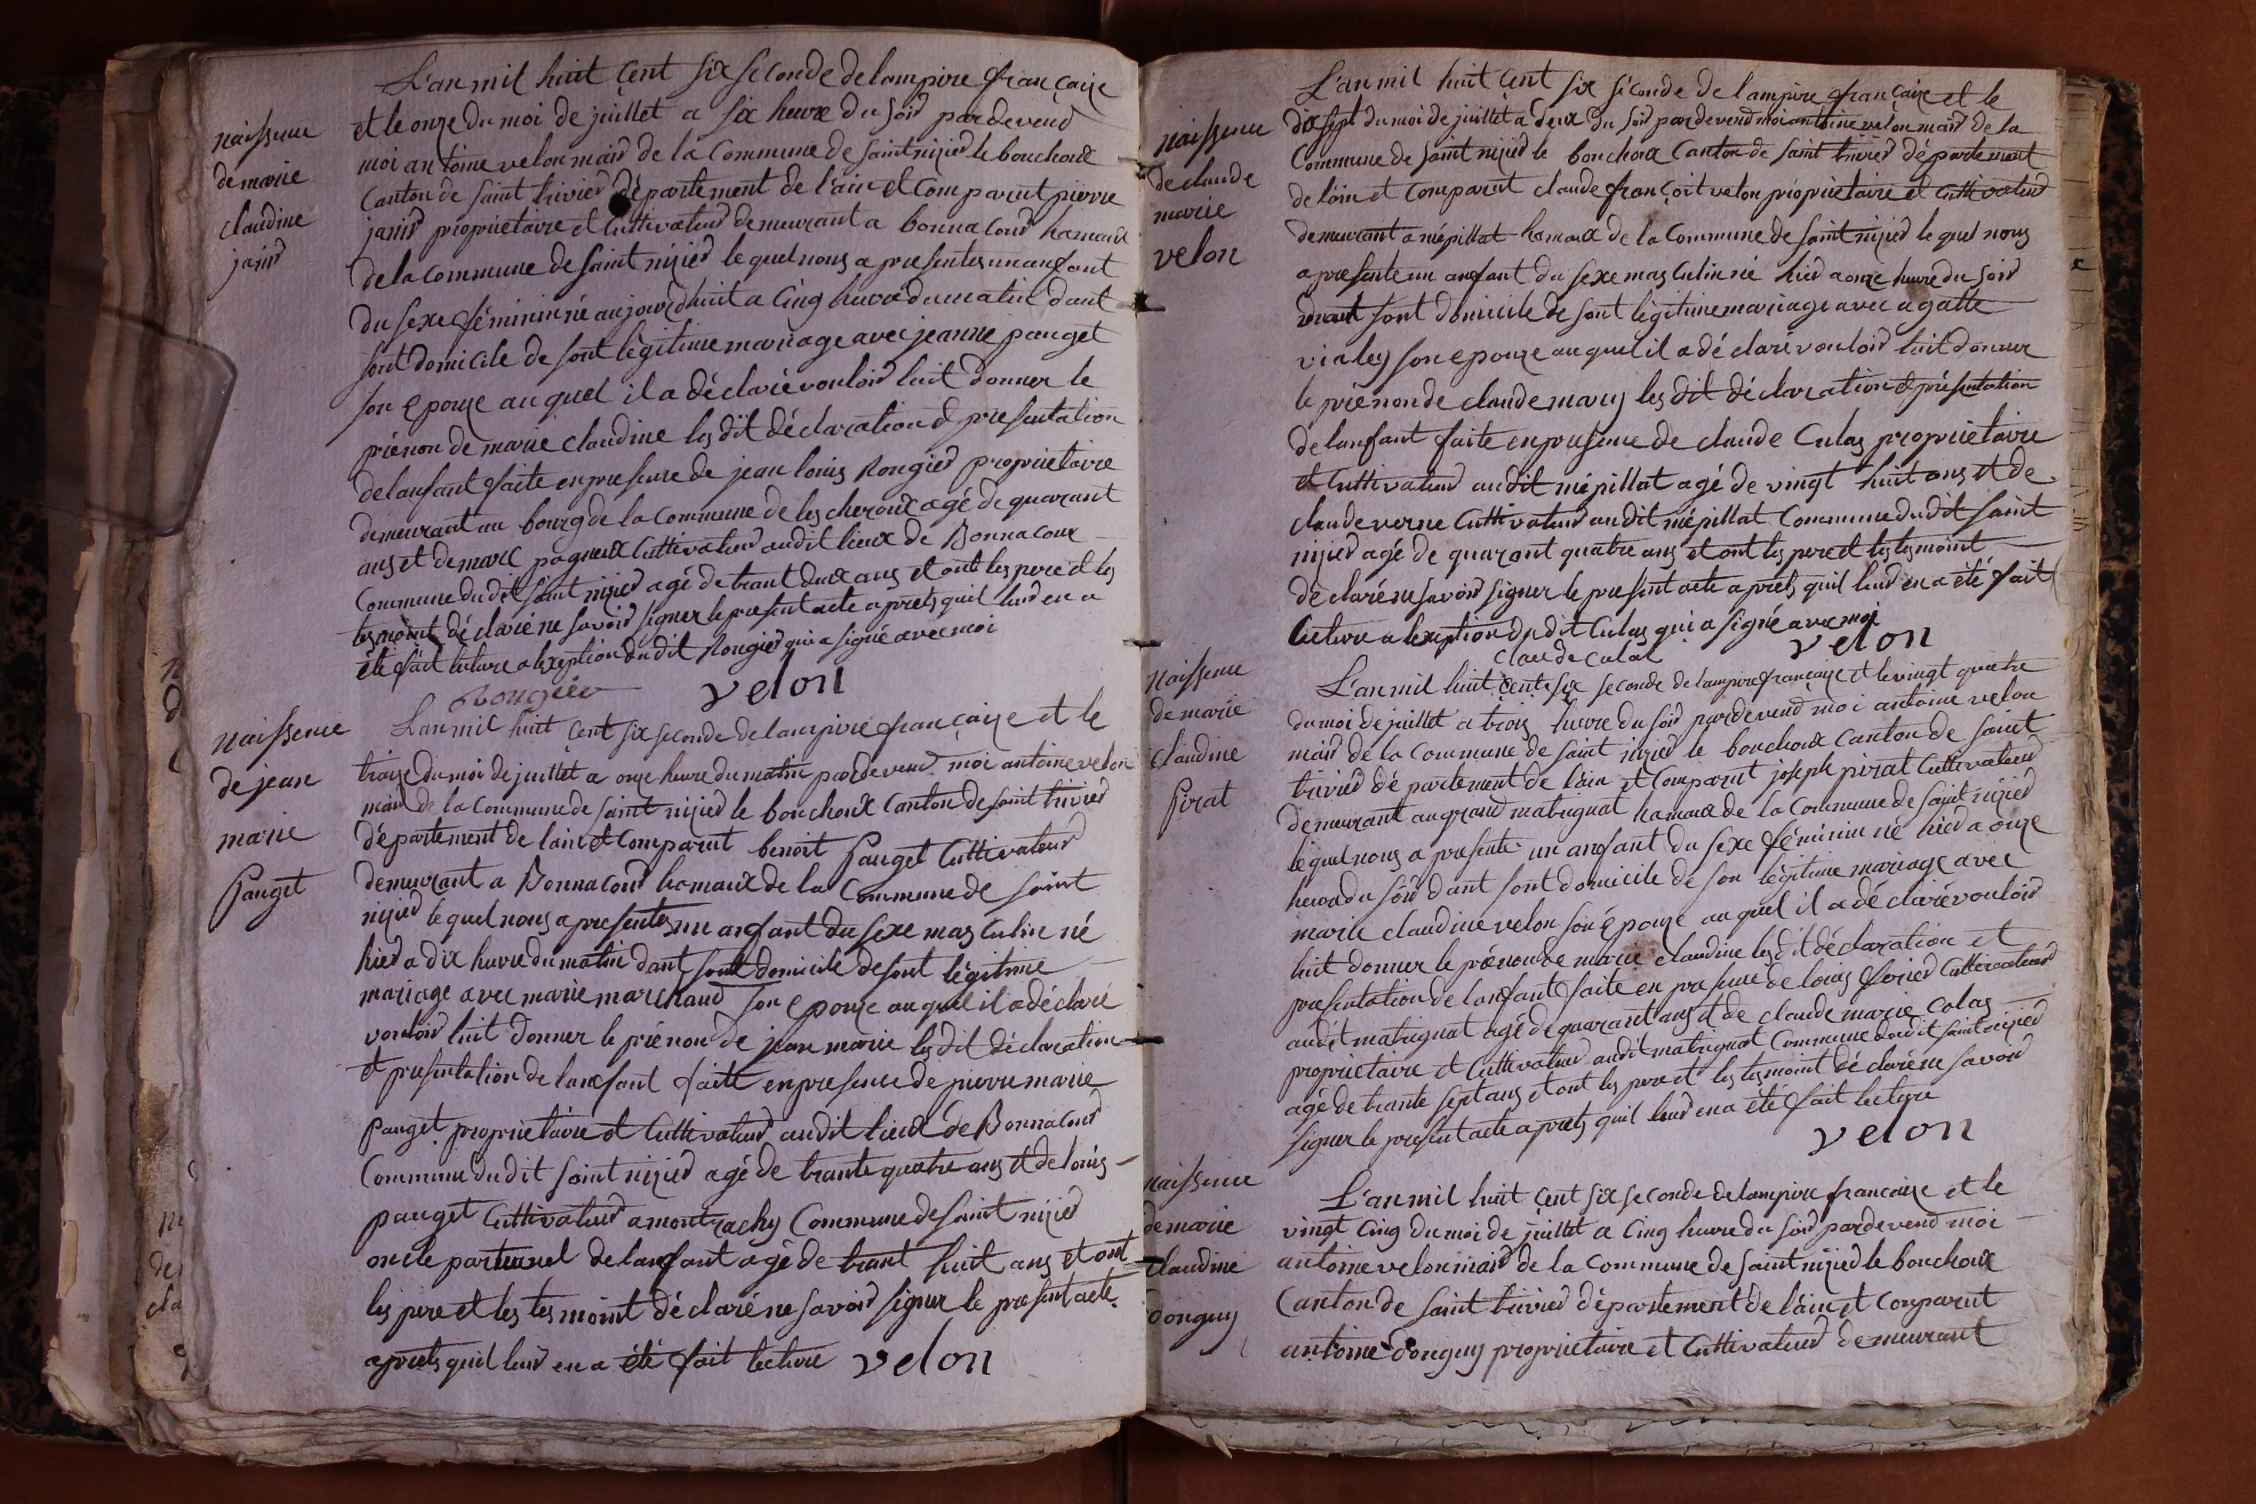 naissence
de marie
claudine
janis
L'an mil huit çent six seconde de lampire françaize
et le onze du moi de juillet a six heure du soir pardevend
moi antoine velon mair de la Commune de saint nizier le bouchoux
Canton de saint trivier département de l'ain et Comparut pierre
janis propriètaire et Cultivateur demeurant a bonnacour hamaux
de la commune de saint nizier le quel nous a presentes un anfant
du sexe féminin né aujourdhuit a Cinq heure du matin dant
sont domicile de sont lègitime mariage avec jeanne pauget
son epouze au quel il a déclaré vouloir luit donner le
prénon de marie claudine les dit déclaration et presentation
de lanfant faite en presence de jean louis Rongier proprietaire
demeurant au bourg de la commune de lescheroux agé de quarant
ans et de marc pagneux Cultivateur audit lieux de Bonnacour
Commune dudit saint nizier agé de trant deux ans et ont les pere et les
tesmoint déclaré ne savoir signer le present acte aprets quil leur en a
été fait lecture a lexeption du dit Rongier qui a signé avec moi
Rongier velon
naissence
de jean
marie
Pauget
L'an mil huit çent six seconde de lampire françaize et le
traize du moi de juillet a onze heure du matin pardevend moi antoine velon
mair de la Commune de saint nizier le bouchoux Canton de saint trivier
département de lain et Comparut benoit Pauget Cultivateur
demeurant a Bonnacour hamaux de la Commune de saint
nizier le quel nous a presentes un anfant du sexe masculin né
hier a dix heure du matin dant sont domicile de sont lègitime
mariage avec marie marchand son epouze au quel il a déclaré
vouloir luit donner le prénon de jean marie les dit déclaration
et presentation de lanfant faite en presence de pierre marie
pauget propriètaire et Cultivateur audit lieux de Bonnacour
Commune dudit saint nizier agé de trante quatre ans et de louis
pauget Cultivateur a montrachy Commune de saint nizier
oncle parternel de lanfant agé de trant huit ans et ont
les pere et les tesmoint déclaré ne savoir signer le present acte
aprets quil leur en a été fait lecture velon
naissence
de claude
marie
velon
L'an mil huit çent six séconde de lampire françaize et le
dix sept du moi de juillet a deux du soir pardevend moi antoine velon mair de la
Commune de saint nizier le bouchoux Canton de saint trivier département
de l'ain et comparut claude françoit velon propriètaire et Cultivateur
demeurant a mépillat hamaux de la Commune de saint nizier le quel nous
a presente un anfant du sexe masculin né hier a onze heure du soir
dant sont domicile de sont lègitime mariage avec agatte
vialey son epouze au quel il a déclaré vouloir luit donner
le prénon de claude mary les dit déclaration et présentation
de lanfant faite en presence de claude Culas propriètaire
et Cultivateur audit mépillat agé de vingt huit ans et de
claude verne Cultivateur audit mépillat Commune dudit saint
nizier agé de quarant quatre ans et ont les pere et les tesmoint
déclaré ne savoir signer le present acte aprets quil leur en a été fait
lecture a lexeption du dit Culas qui a signé avec moi
claude culas velon
naissence
de marie
claudine
Pirat
L'an mil huit çent six seconde de lampire françaize et le vingt quatre
du moi de juillet a trois heure du soir pardevend moi antoine velon
mair de la commune de saint nizier le bouchoux Canton de saint
trivier département de l'ain et Comparut joseph pirat Cultivateur
demeurant au grand matrignat hamaux de la Commune de saint nizier
le quel nous a presente un anfant du sexe féminin né hier a onze
heure du soir dant sont domicile de son lègitime mariage avec
marie claudine velon son épouze au quel il a déclaré vouloir
luit donner le prénon de marie claudine les dit déclaration et
presentation de lanfant faite en presence de louis ferier Cultivateur
audit matrignat agé de quarant ans et de claude marie Colas
propriètaire et Cultivateur audit matrignat Commune dudit saint nizier
agé de trante sept ans et ont les pere et les tesmoint déclaré ne savoir
signer le present acte aprets quil leur en a été fait lecture
velon
naissence
de marie
claudine
donguy
L'an mil huit çent six seconde de lampire françaize et le
vingt Cinq du moi de juillet a Cinq heure du soir pardevend moi
antoine velon mair de la Commune de saint nizier le bouchoux
Canton de saint trivier département de l'ain et Comparut
antoine donguy propriètaire et Cultivateur demeurant